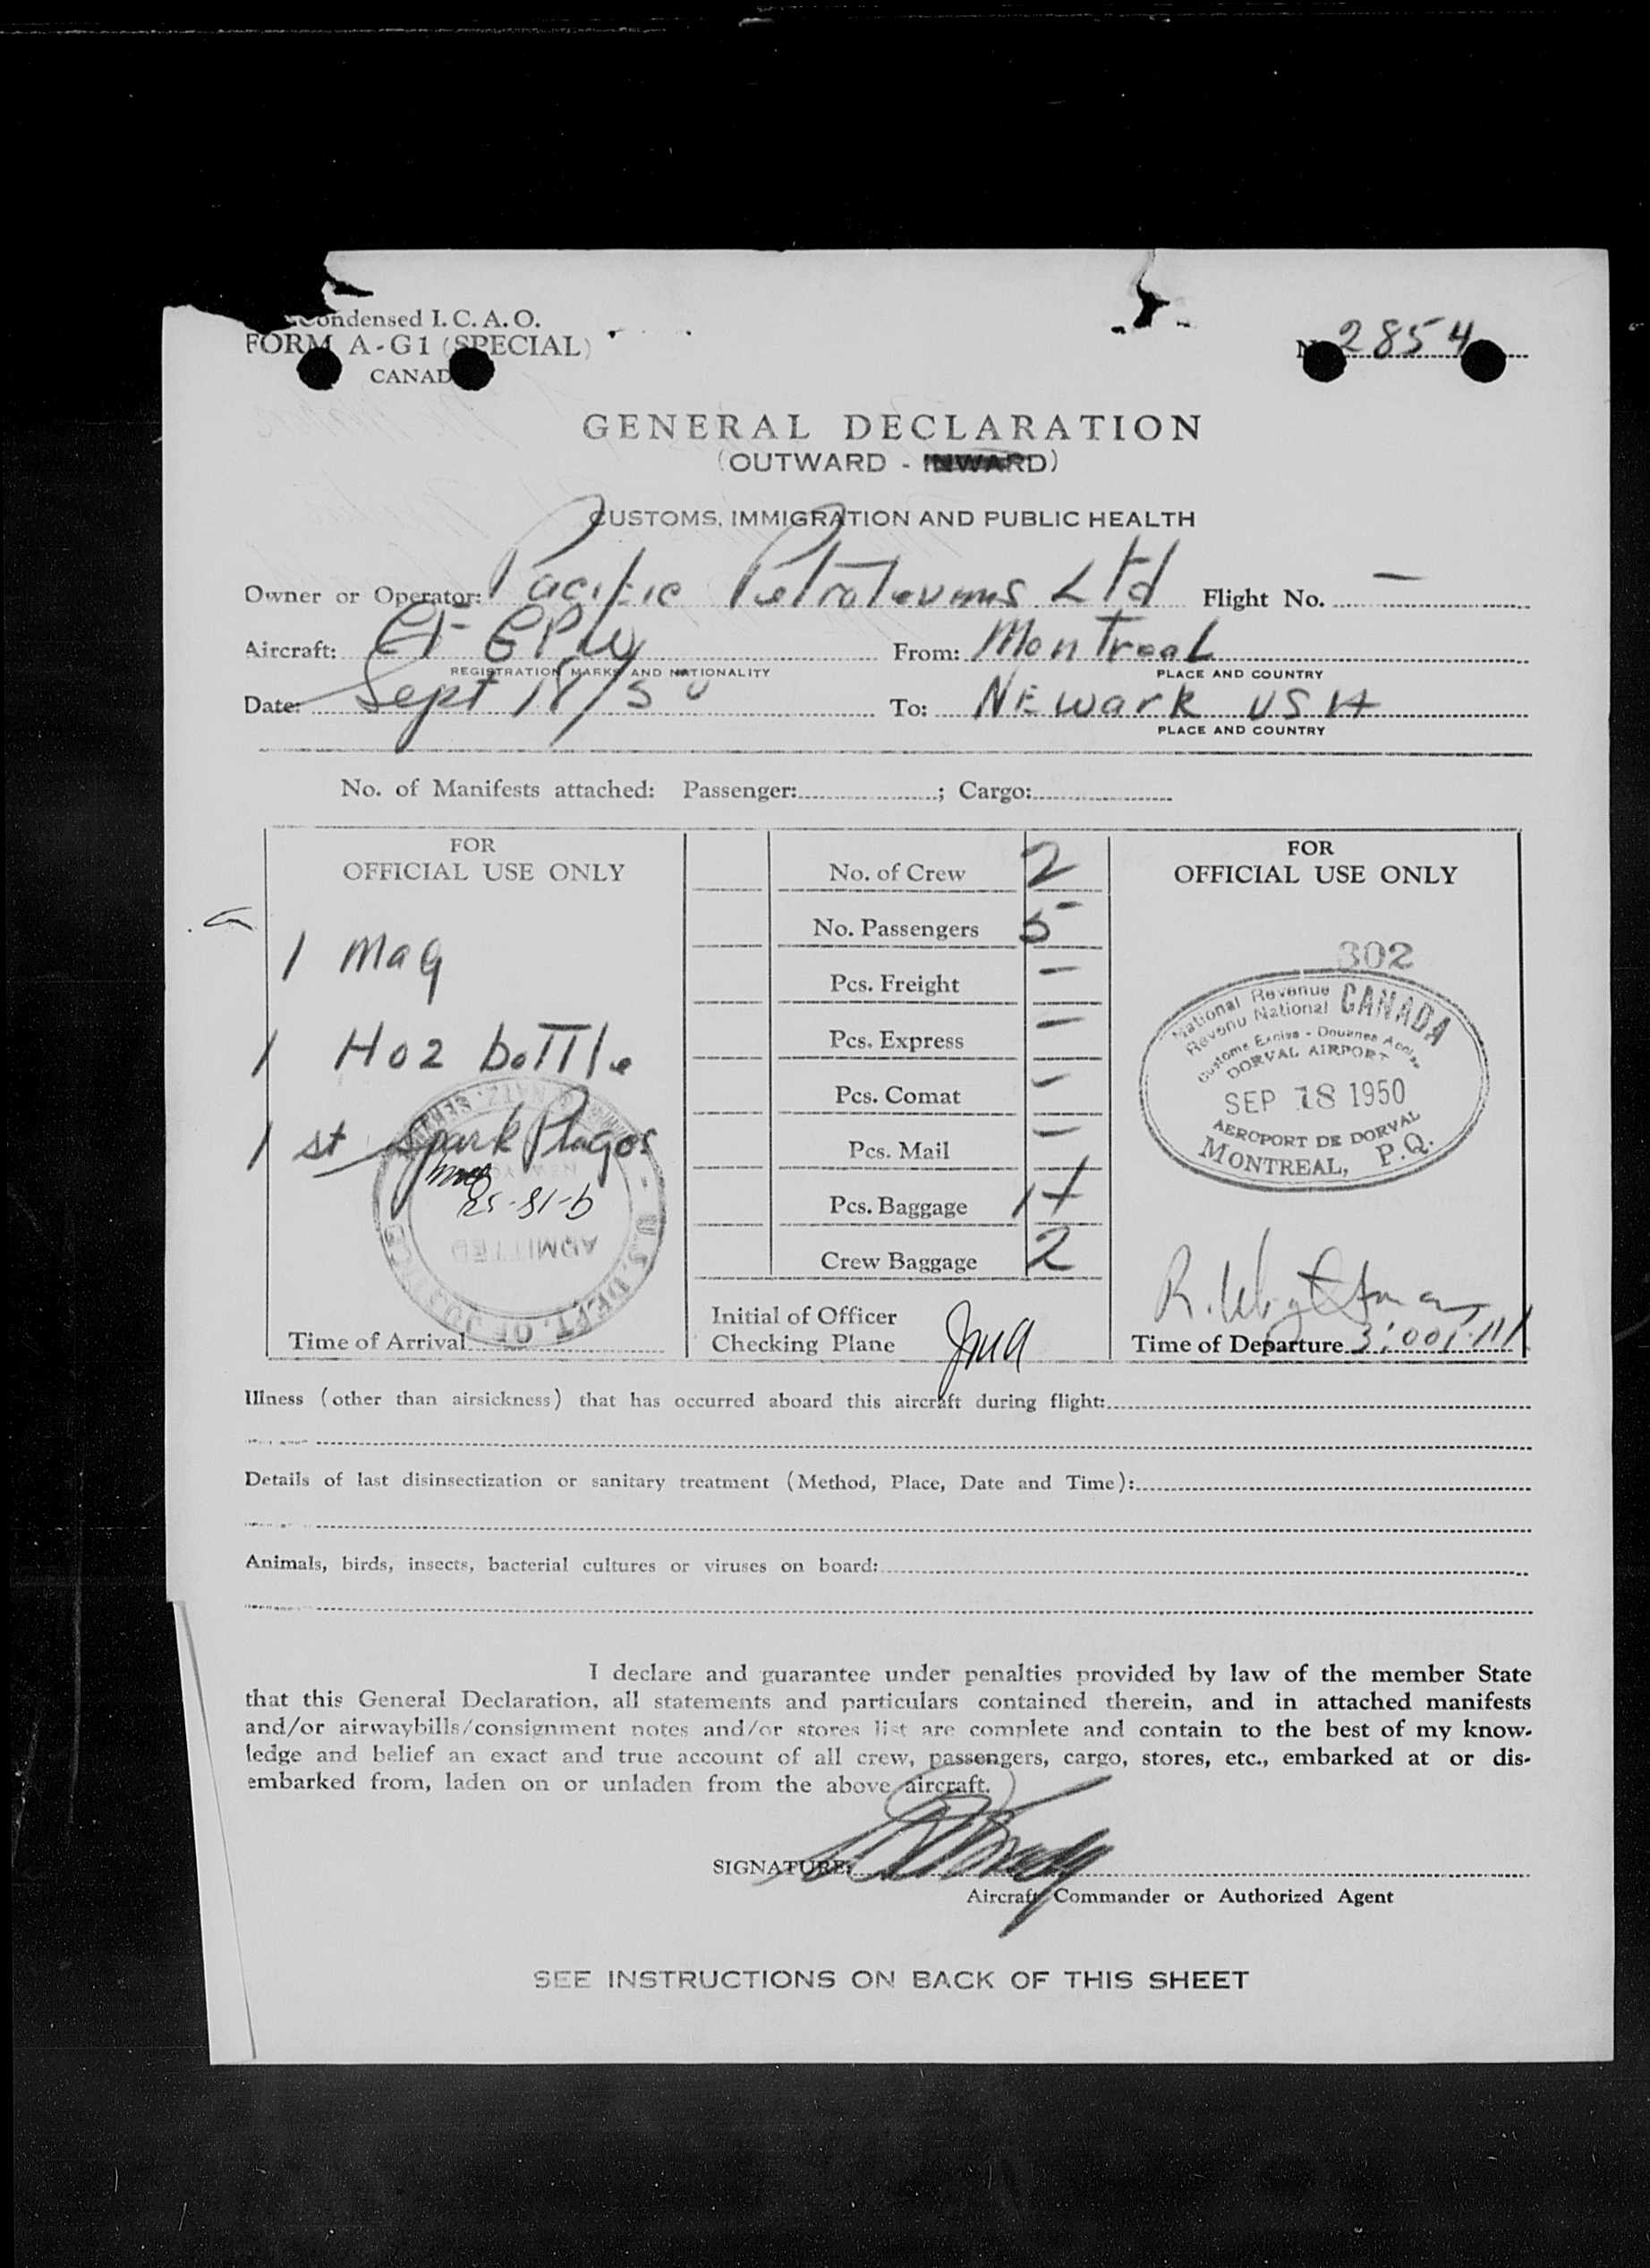 Condensed I. C. A. O.
FORM A-G1 (SPECIAL)
CANAD
2854
GENERAL DECLARATION
(OUTWARD - INWARD)
CUSTOMS, IMMIGRATION AND PUBLIC HEALTH
Owner or Operator: Pacific Petroleums Ltd Flight No. —
Aircraft: CF GPW From: Montreal
REGISTRATION MARKS AND NATIONALITY PLACE AND COUNTRY
Date: Sept 18/50 To: NEwark USA
PLACE AND COUNTRY
No. of Manifests attached: Passenger: ; Cargo:
FOR
OFFICIAL USE ONLY
1 Mag
1 H02 boTTle
1 st Spark Plugs
9-18-50
ADMITTED
U.S. DEPT. OF
Time of Arrival
No. of Crew 2
No. Passengers 5
Pcs. Freight —
Pcs. Express —
Pcs. Comat —
Pcs. Mail —
Pcs. Baggage
Crew Baggage 2
Initial of Officer
Checking Plane
FOR
OFFICIAL USE ONLY
302
National Revenue CANADA
Revenu National
Customs Excise - Douanes Accise
DORVAL AIRPORT
SEP 18 1950
AEROPORT DE DORVAL
MONTREAL, P.Q.
Time of Departure 3:00
Illness (other than airsickness) that has occurred aboard this aircraft during flight:
Details of last disinsectization or sanitary treatment (Method, Place, Date and Time):
Animals, birds, insects, bacterial cultures or viruses on board:
I declare and guarantee under penalties provided by law of the member State
that this General Declaration, all statements and particulars contained therein, and in attached manifests
and/or airwaybills/consignment notes and/or stores list are complete and contain to the best of my know-
ledge and belief an exact and true account of all crew, passengers, cargo, stores, etc., embarked at or dis-
embarked from, laden on or unladen from the above aircraft.
SIGNATURE:
Aircraft Commander or Authorized Agent
SEE INSTRUCTIONS ON BACK OF THIS SHEET